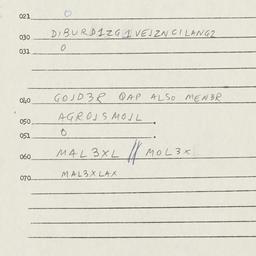 021 0
030 DIBURD1ZG1VEJZNCILANG2
031 0
040 GOJD3R QAP ALSO MEN3R
050 AGROJSMOJL.
051 0 .
060 MAL3XL // MOL3X
070 MAL3XLAX